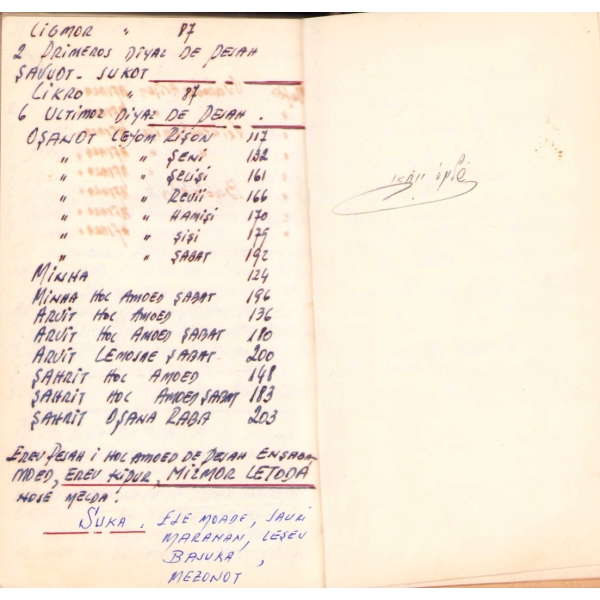 LIGMOR " 87
2 PRIMEROS DIYAZ DE PESAH
ŞAVUOT - SUKOT
LIKRO " 87
6 ULTIMOZ DIYAZ DE PESAH.
OŞANOT LEYOM RİŞON 117
" " ŞENİ 132
" " ŞELİŞİ 161
" " REVİİ 166
" " HAMİŞİ 170
" " ŞİŞİ 179
" " ŞABAT 192
MİNHA 124
MİNHA HOL AMOED ŞABAT 196
ARVİT HOL AMOED 136
ARVİT HOL AMOED ŞABAT 180
ARVİT LEMOSAE ŞABAT 200
ŞAHRİT HOL AMOED 148
ŞAHRİT HOL AMOED ŞABAT 183
ŞAHRİT OŞANA RABA 203
EREV PESAH I HOL AMOED DE PESAH
MOED, EREV KİPUR, MİZMOR LETODA
NOSE MELDA.
SUKA. ELE MOADE, SAVRİ
MARANAN, LEŞEV
BASUKA,
MEZONOT